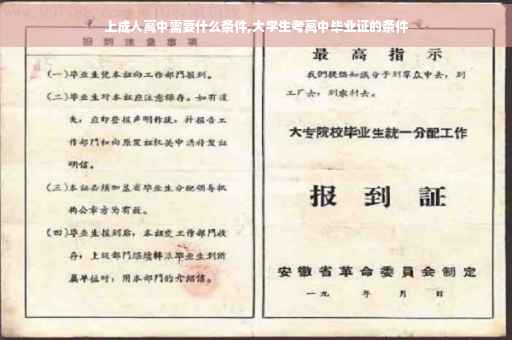 上成人高中需要什么条件,大学生考高中毕业证的条件
报到注意事项
(一)毕业生凭本证向工作部门报到。
(二)毕业生对本证应注意保存。如有遗
失，应即登报声明作废，并报告工
作部门和向原发证机关申请补发证
明信。
(三)本证必须加盖省毕业生分配领导机
构公章方为有效。
(四)毕业生报到后，本证交工作部门收
存；上级部门继续转派毕业生到所
属单位时，用本部门的介绍信。
最高指示
我们提倡知识分子到群众中去，到
工厂去，到农村去。
大专院校毕业生统一分配工作
报到証
安徽省革命委員会制定
一九 年 月 日